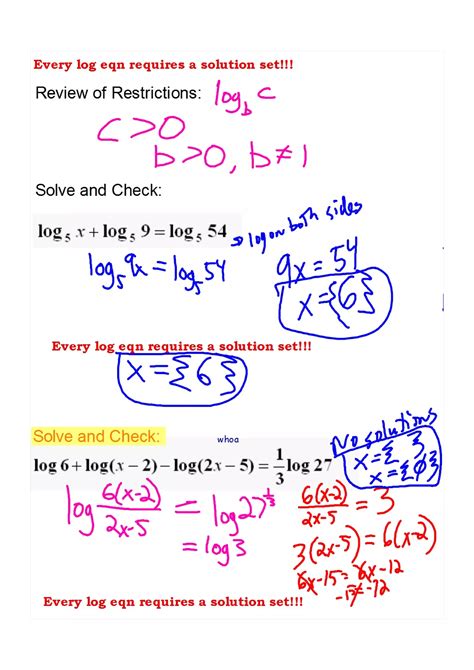 Every log eqn requires a solution set!!!
Review of Restrictions: log_b c
c>0
b>0, b≠1
Solve and Check:
log₅ x + log₅ 9 = log₅ 54
→ log on both sides
log₅ 9x = log₅ 54
9x = 54
x={6}
Every log eqn requires a solution set!!!
x={6}
Solve and Check:
whoa
No solutions
log 6 + log(x − 2) − log(2x − 5) = 1/3 log 27
x={ }
x={∅}
log 6(x-2)/2x-5 = log 27^1/3
= log 3
6(x-2)/2x-5 = 3
3(2x-5) = 6(x-2)
6x-15 = 6x-12
-15≠-12
Every log eqn requires a solution set!!!